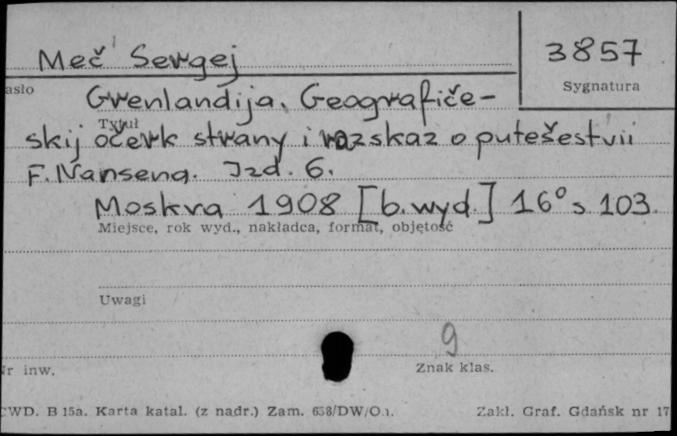 Meč Sergej
3857
asło
Sygnatura
Grenlandija. Geografiče-
Tytuł
skij očerk strany i razskaz o putešestvii
F. Nansena. Izd. 6.
Moskva 1908 [b. wyd.] 16° s 103.
Miejsce, rok wyd., nakładca, format, objętość
Uwagi
9
Nr inw.
Znak klas.
CWD. B 15a. Karta katal. (z nadr.) Zam. 638/DW/O.
Zakł. Graf. Gdańsk nr 17